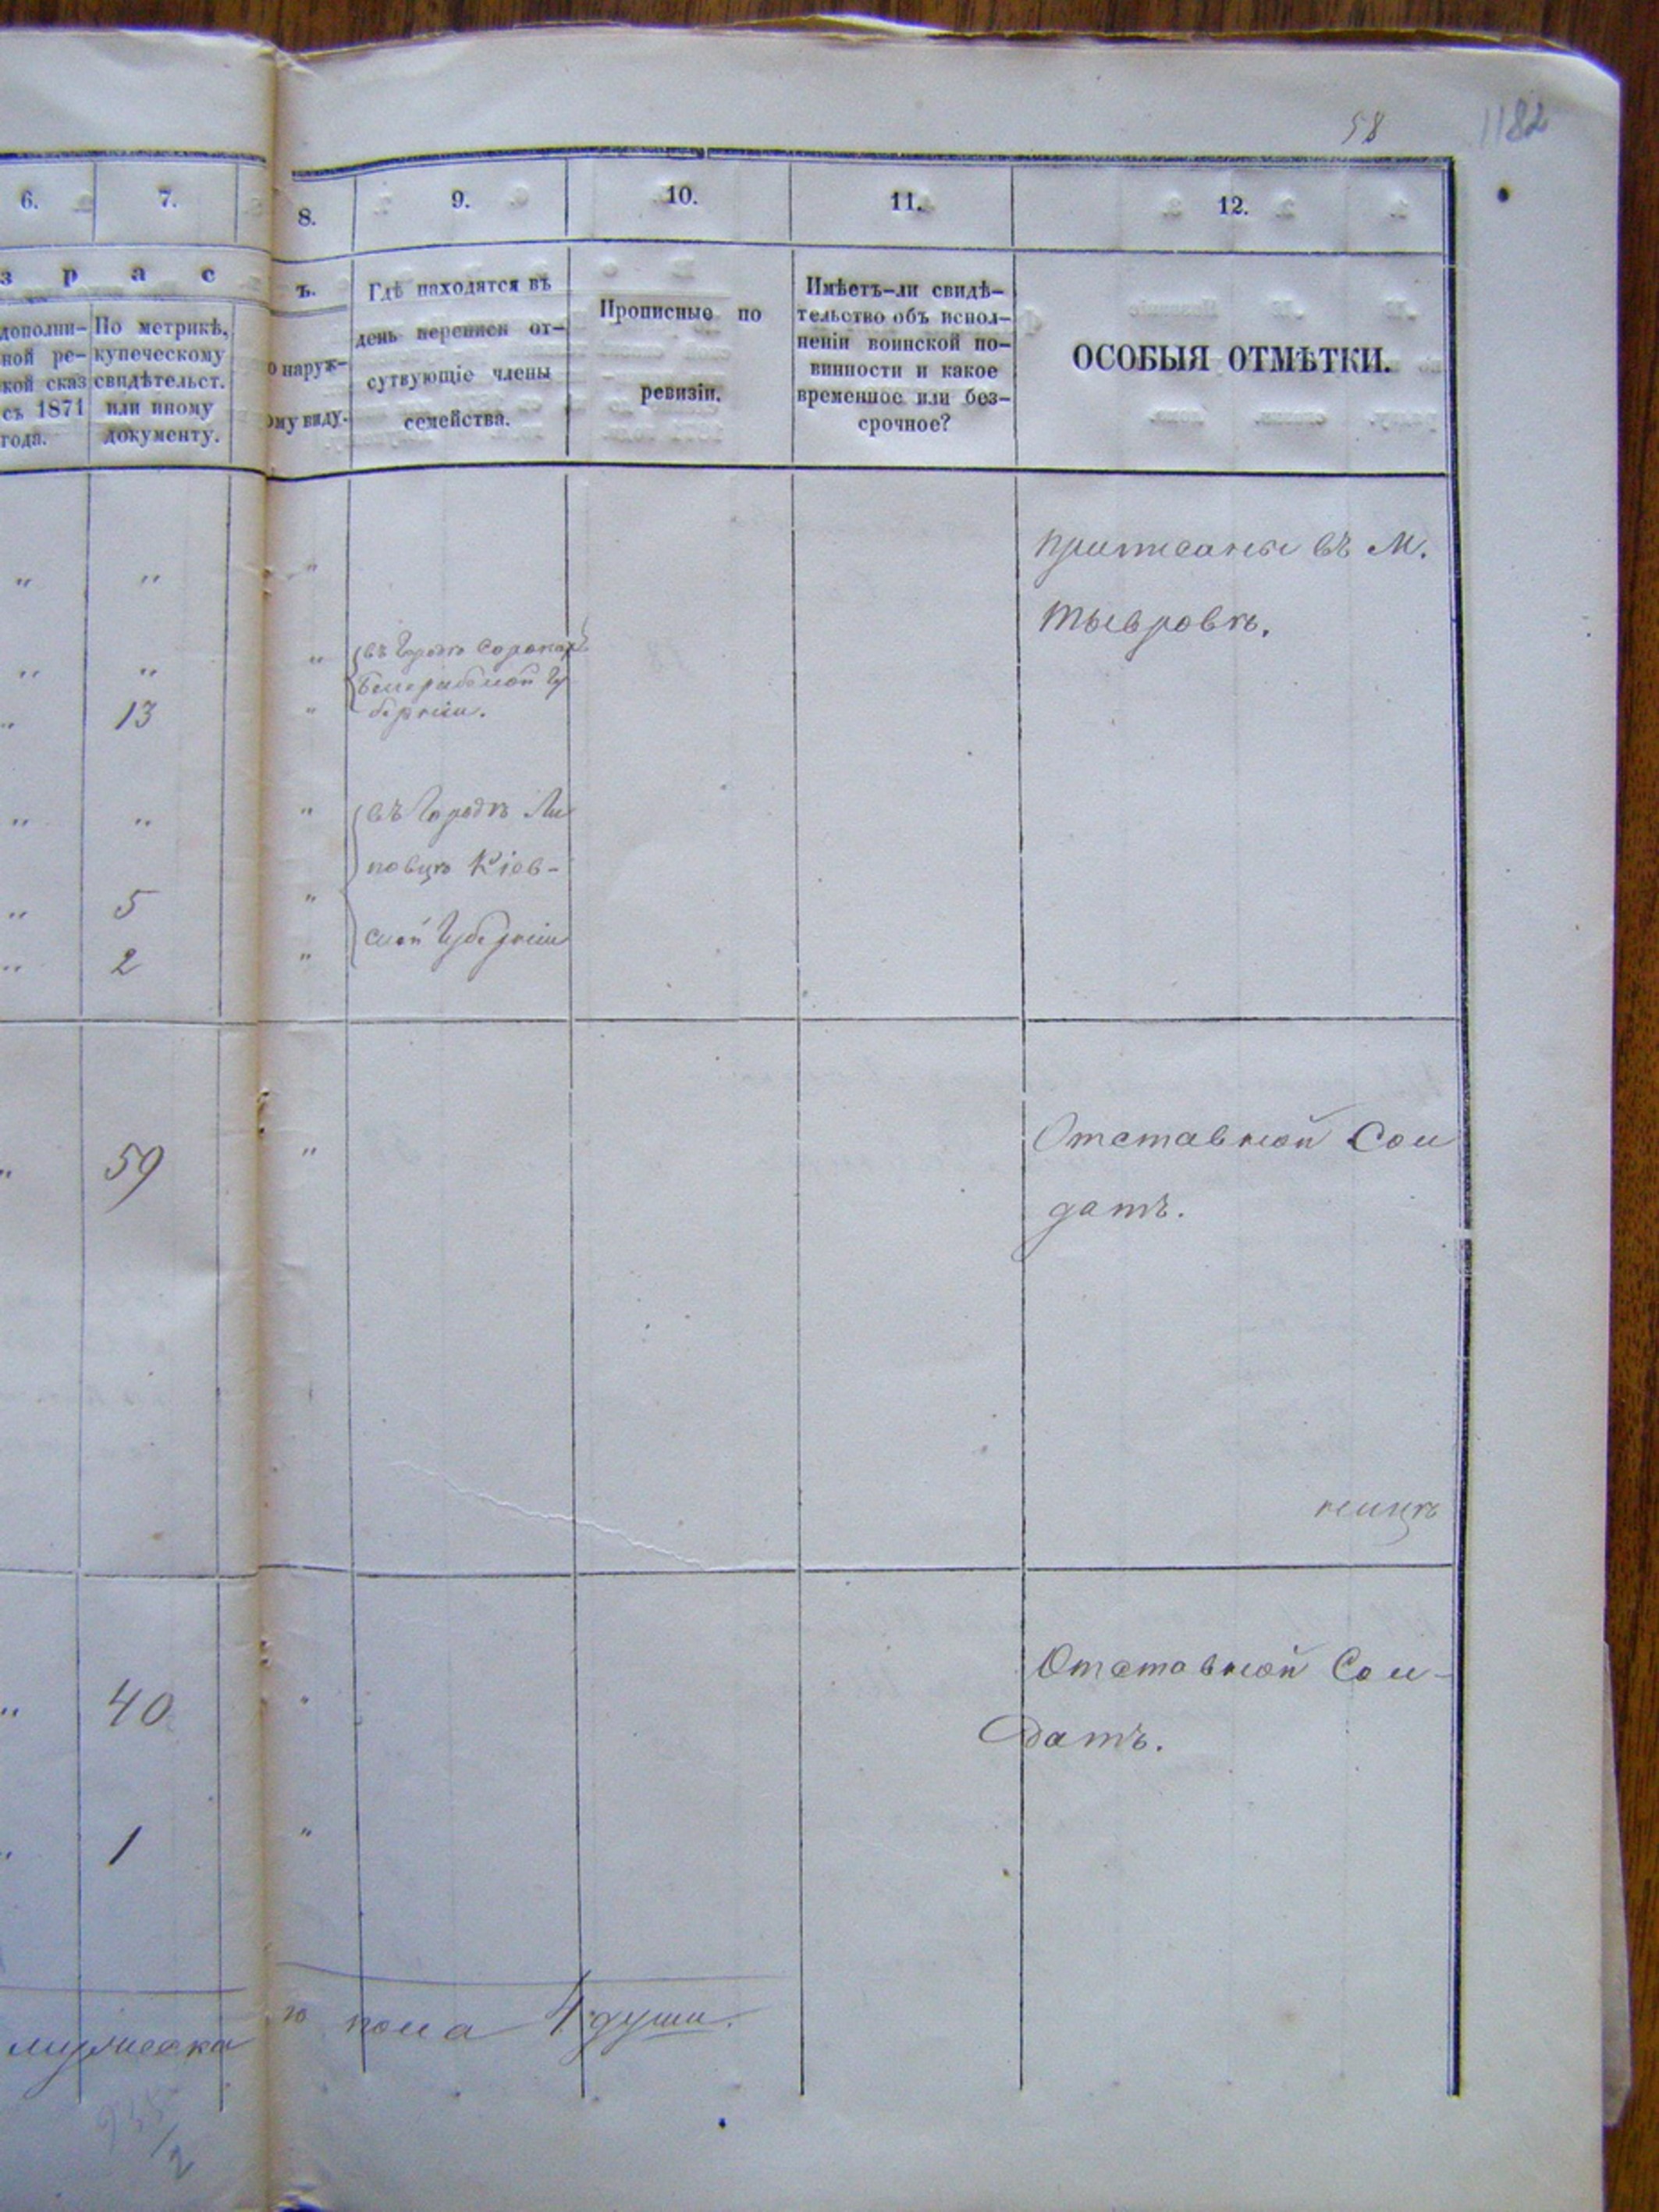 58 1182
6. 7. 8. 9. 10. 11. 12.
з р а с ъ.
дополни-
ной ре-
кой сказ
съ 1871
года.
По метрикѣ,
купеческому
свидѣтельст.
или иному
документу.
о наруж-
ому виду.
Гдѣ находятся въ
день переписи от-
сутвующіе члены
семейства.
Прописные по
ревизіи.
Имѣетъ-ли свидѣ-
тельство объ испол-
неніи воинской по-
винности и какое
временное или без-
срочное?
ОСОБЫЯ ОТМѢТКИ.
" " "
приписаны въ М.
Тывровѣ.
" " "
въ Городѣ Сорокахъ
Бесерабской Гу
берніи.
" 13 "
" " "
въ Городѣ Ли
повцѣ Кіев-
ской Губерніи
" 5 "
" 2 "
" 59 "
Отставной Сол
датъ.
" 40 "
Отставной Сол-
датъ.
" 1 "
мужеска го пола 4 души.